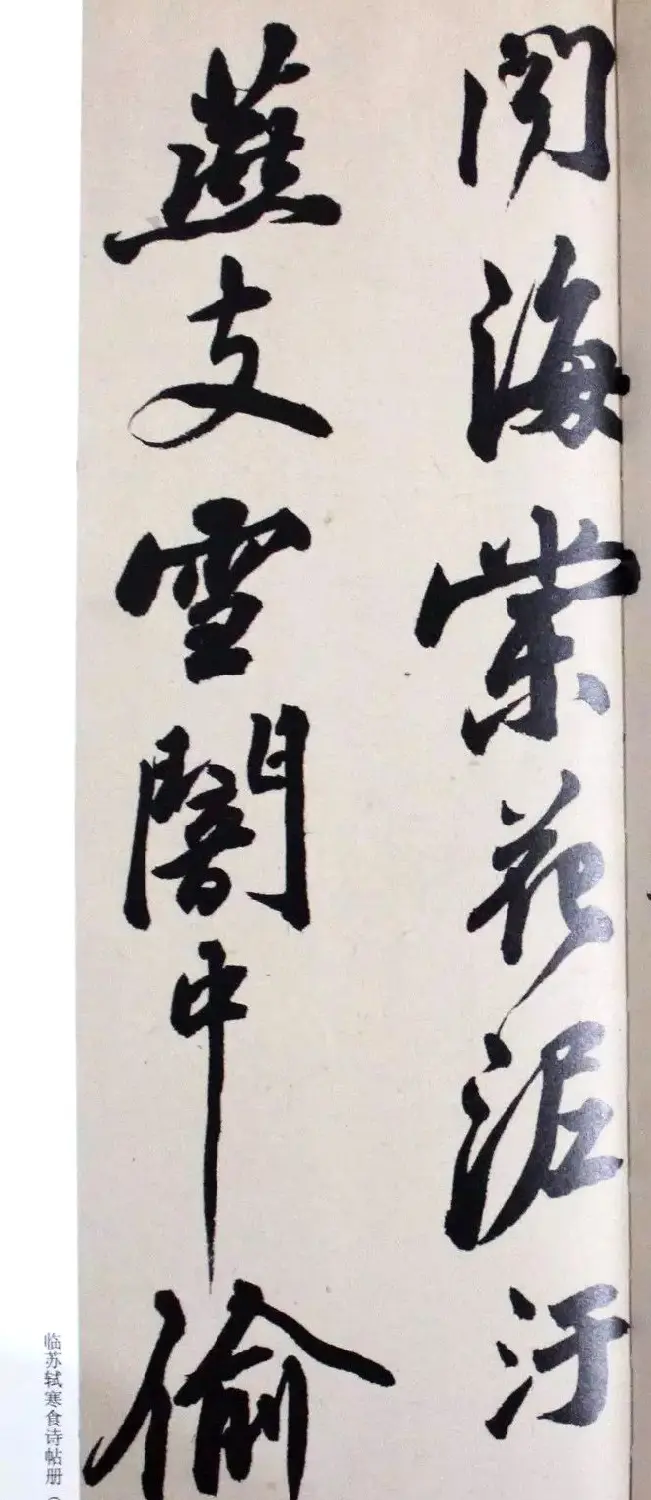 聞海棠花泥汙
燕支雪闇中偷
临苏轼寒食诗帖册（